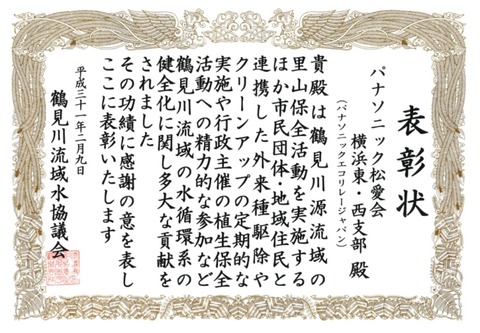 表彰状
パナソニック松愛会
横浜東・西支部 殿
(パナソニックエコリレージャパン)
貴殿は鶴見川源流域の
里山保全活動を実施する
ほか市民団体・地域住民と
連携した外来種駆除や
クリーンアップの定期的な
実施や行政主催の植生保全
活動への精力的な参加など
鶴見川流域の水循環系の
健全化に関し多大な貢献を
されました
その功績に感謝の意を表し
ここに表彰いたします
平成三十一年二月九日
鶴見川流域水協議会